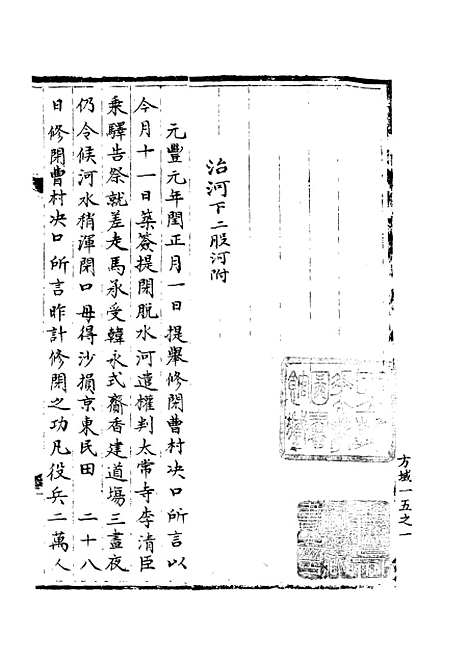 方域一五之一
治河下二股河附
元豐元年閏正月一日提舉修閉曹村决口所言以
今月十一日築簽提閉脫水河遣權判太常寺李清臣
乘驛告祭就差走馬承受韓永式齎香建道場三晝夜
仍令候河水稍渾閉口毋得沙損京東民田 二十八
日修閉曹村决口所言昨計修閉之功凡役兵二萬人